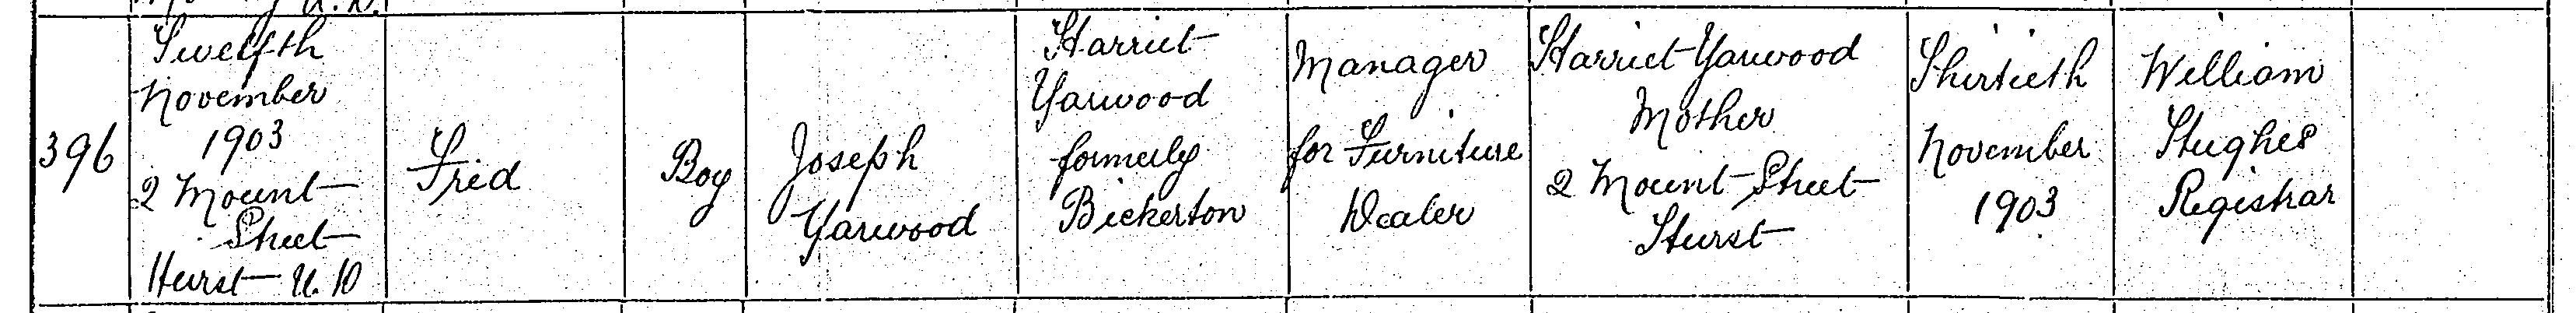 396
Twelfth
November
1903
2 Mount
Street
Hurst U.D
Fred
Boy
Joseph
Yarwood
Harriet
Yarwood
formerly
Bickerton
Manager
for Furniture
Dealer
Harriet Yarwood
Mother
2 Mount Street
Hurst
Thirtieth
November
1903
William
Hughes
Registrar